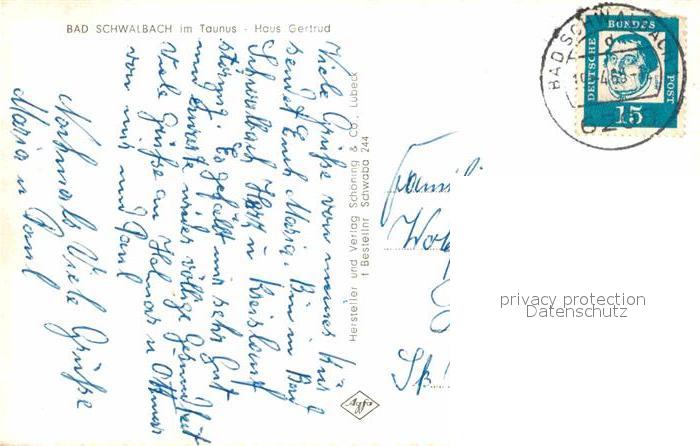 BAD SCHWALBACH im Taunus - Haus Gertrud
Viele Grüße von meiner Kur
sendet Euch Maria. Bin in Bad
Schwalbach Herz u Kreislauf
störung. Es gefällt mir sehr gut
und
Viele Grüße an Helmar u Ottmar
von mir und Paul
Nochmals Viele Grüße
Maria u Paul
Hersteller und Verlag Schöning & Co., Lübeck
† Bestellnr Schwaba 244
Agfa
BAD SCHWALBACH
d
62
DEUTSCHE
BUNDES
POST
15
Famil
Wol
privacy protection
Datenschutz